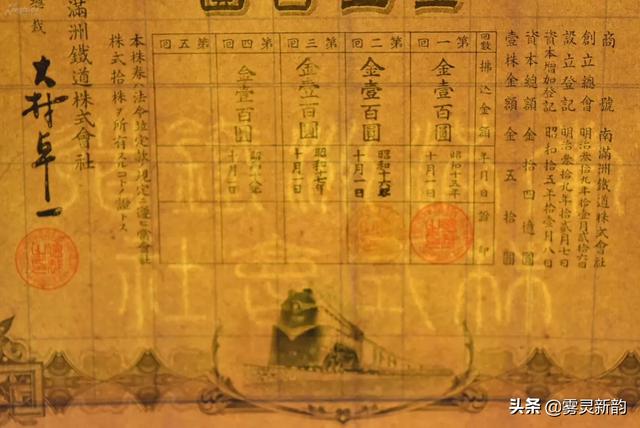 商號 南滿洲鐵道株式會社
創立總會 明治參拾九年拾壹月貳拾六日
設立登記 明治參拾九年拾貳月七日
資本增加登記 昭和拾五年拾壹月八日
資本總額 金拾四億圓
壹株金額 金五拾圓
回數 拂込金額 年月日 證印
第一回 金壹百圓 昭和十五年十月一日
第二回 金壹百圓 昭和十六年十月一日
第三回 金壹百圓 昭和十七年十月一日
第四回 金壹百圓 昭和十八年十月一日
第五回
本株券ハ法令竝定款ノ規定ニ遵ヒ當會社
株式拾株ヲ所有スルコトヲ證トス
滿洲鐵道株式會社
總裁 大村卓一
头条 @雾灵新韵